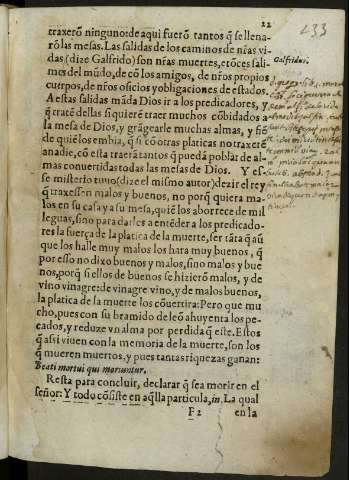 22
233
traxerõ ninguno: de aqui fuerõ tantos q̃ se llena-
rõ las mesas. Las salidas de los caminos de nr̃as vi-
das (dize Galfrido) son nr̃as muertes, etõces sali-
mes del mũdo, de cõ los amigos, de nr̃os propios
cuerpos, de nr̃os oficios y obligaciones de estados.
A estas salidas mãda Dios ir a los predicadores, y
q̃ tratẽ dellas si quierẽ traer muchos cõbidados a
la mesa de Dios, y grãgearle muchas almas, y fiẽ
de quiẽ los embia, q̃ si cõ otras platicas no traxerẽ
a nadie, cõ esta traerã tantos q̃ puedã poblar de al-
mas conuertidas todas las mesas de Dios. Y es-
se misterio tuuo (dize el mismo autor) dezir el rey
q̃ traxessen malos y buenos, no porq̃ quiera ma-
los en su casa y a su mesa, quiẽ los aborrece de mil
leguas, sino para darles a entẽder a los predicado-
res la fuerça de la platica de la muerte, ser tãta q̃ aũ
que los halle muy malos los hara muy buenos, q̃
por esso no dixo buenos y malos, sino malos y bue
nos, porq̃ si ellos de buenos se hizierõ malos, y de
vino vinagre: de vinagre vino, y de malos buenos,
la platica de la muerte los cõuertira: Pero que mu
cho, pues con su bramido de leõ ahuyenta los pe-
cados, y reduze vn alma por perdida q̃ este. Estos
q̃ assi viuen con la memoria de la muerte, son los
q̃ mueren muertos, y pues tantas riquezas ganan:
Beati mortui qui moriuntur.
Resta para concluir, declarar q̃ sea morir en el
señor: Y todo cõsiste en aq̃lla particula, in. La qual
F 2 en la
Galfridus.